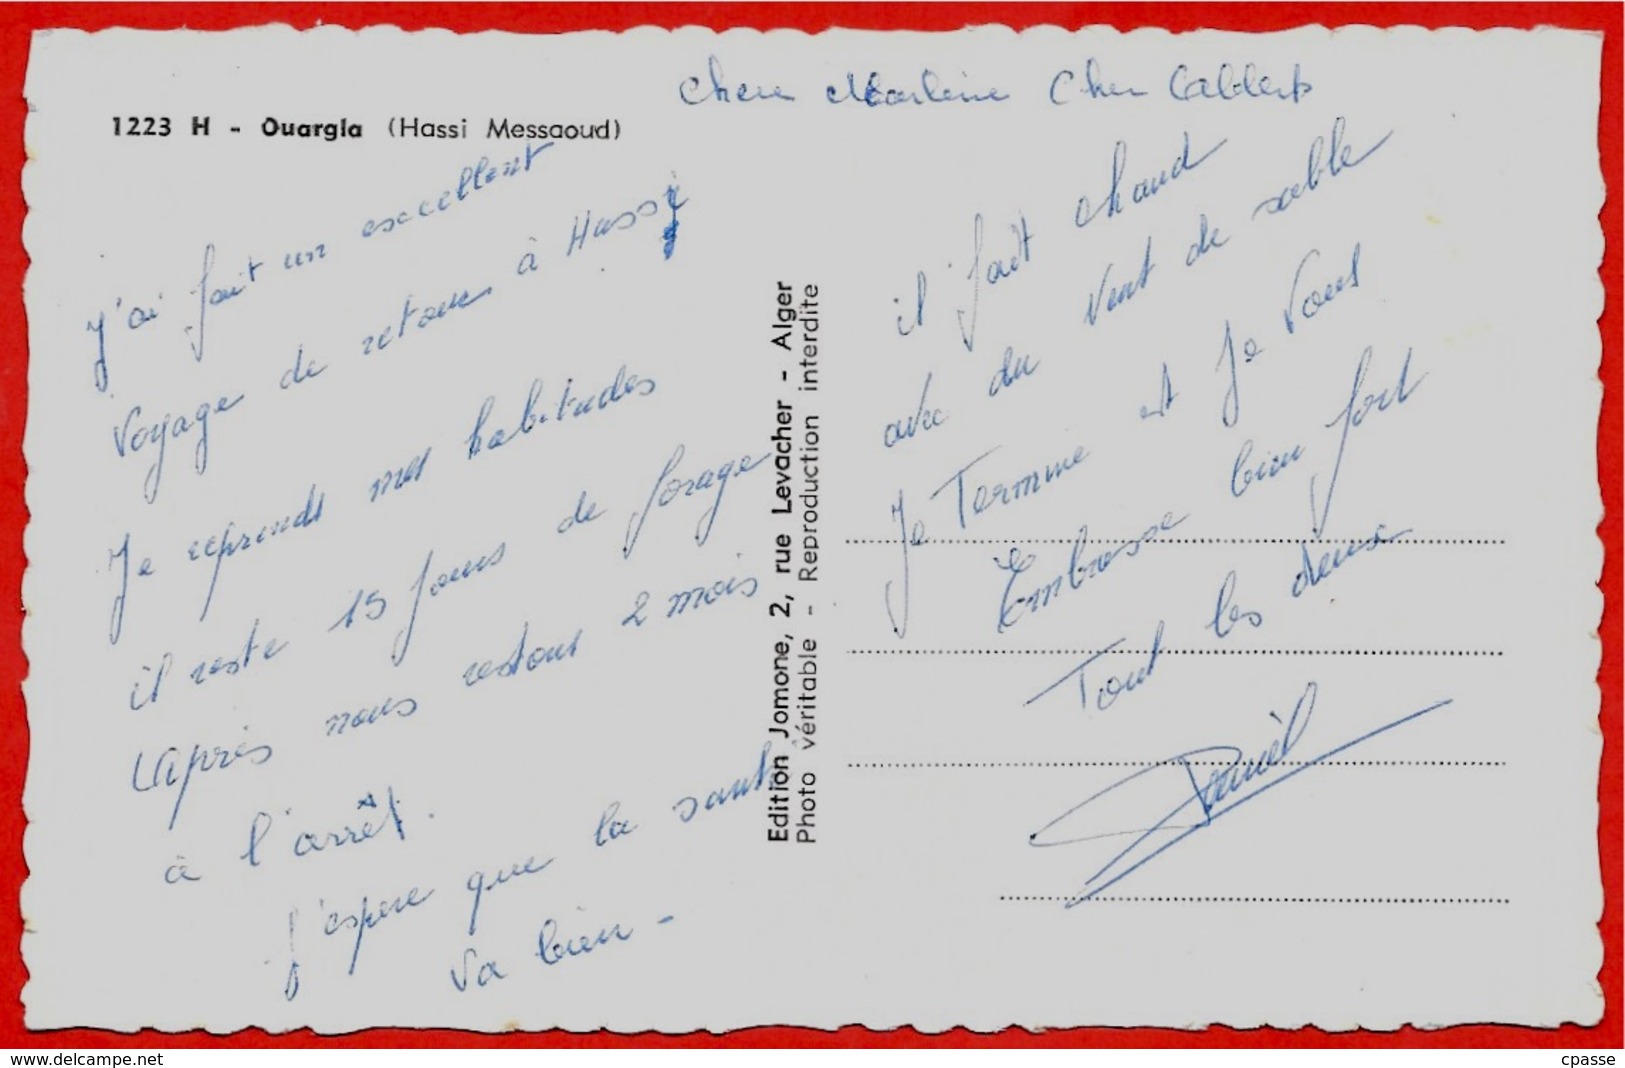 1223 H - Ouargla (Hassi Messaoud)
Chere Marlène Cher
J'ai fait un excellent
voyage de retour à Hassi
Je reprends mes habitudes
il reste 15 jours de forage
après nous restons 2 mois
à l'arrêt.
J'espere que la santé
va bien -
Edition Jomone, 2, rue Levacher - Alger
Photo véritable - Reproduction interdite
il fait chaud
avec du vent de sable
Je Termine et Je Vous
Embrasse bien fort
Tout les deux
Daniel
www.delcampe.net
cpasse